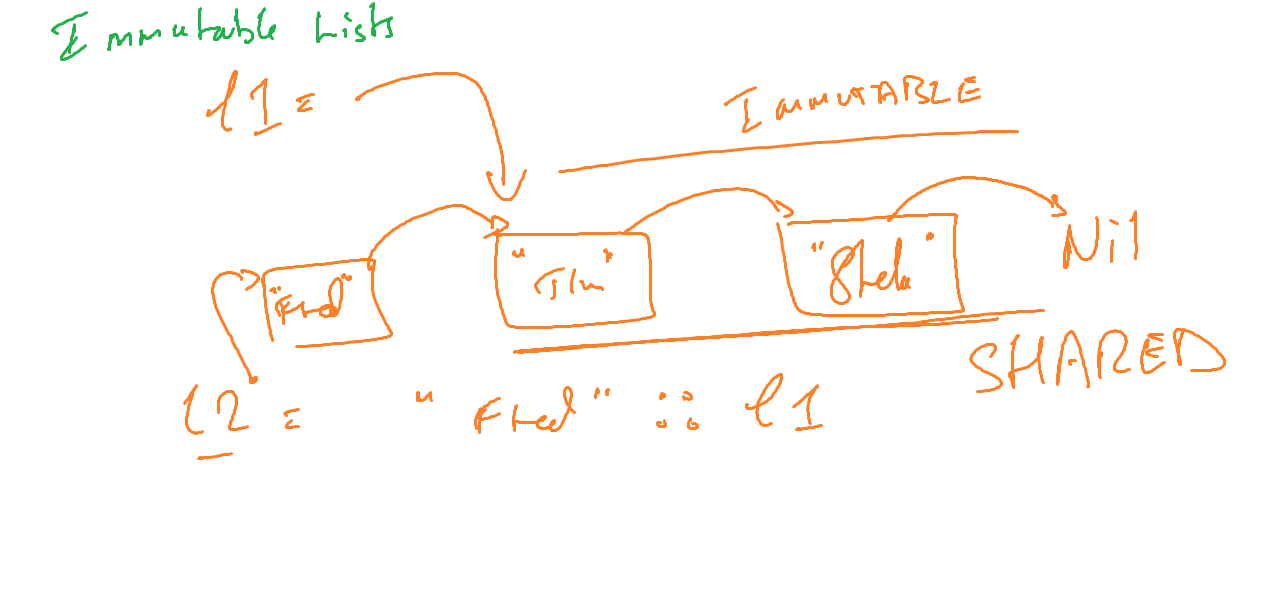 Immutable Lists
l1 =
IMMUTABLE
"Fred" "Jim" "Shela" Nil
SHARED
l2 = "Fred" :: l1